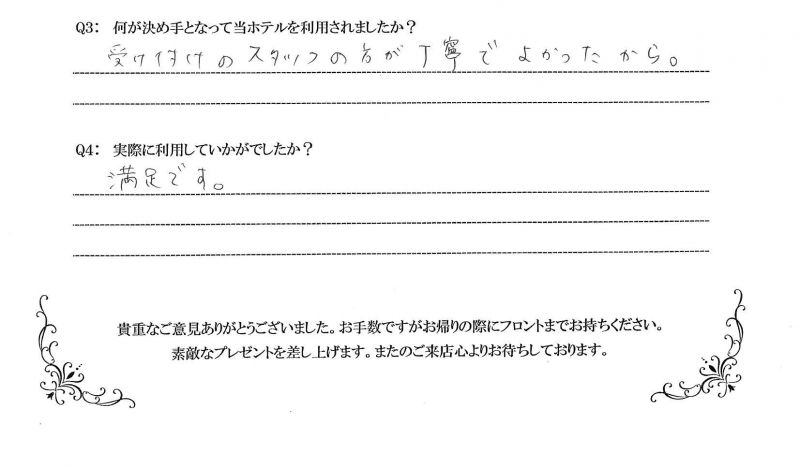 Q3： 何が決め手となって当ホテルを利用されましたか？
受け付けのスタッフの方が丁寧でよかったから。
Q4： 実際に利用していかがでしたか？
満足です。
貴重なご意見ありがとうございました。お手数ですがお帰りの際にフロントまでお持ちください。
素敵なプレゼントを差し上げます。またのご来店心よりお待ちしております。